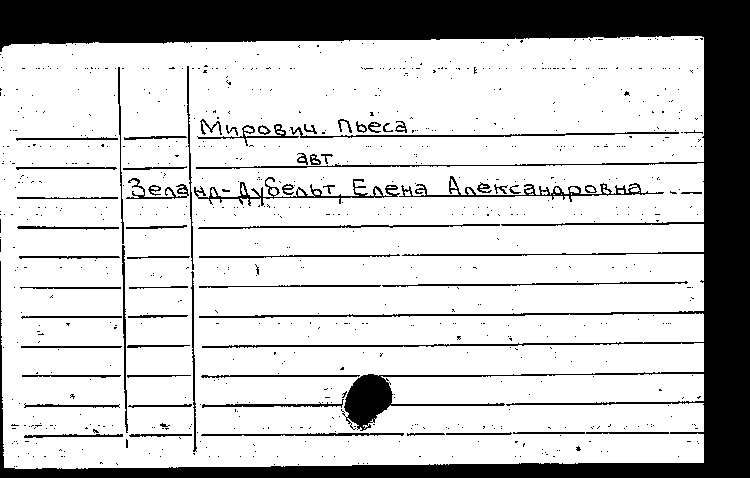 Мирович. Пьеса.
авт.
Зеланд-Дубельт, Елена Александровна